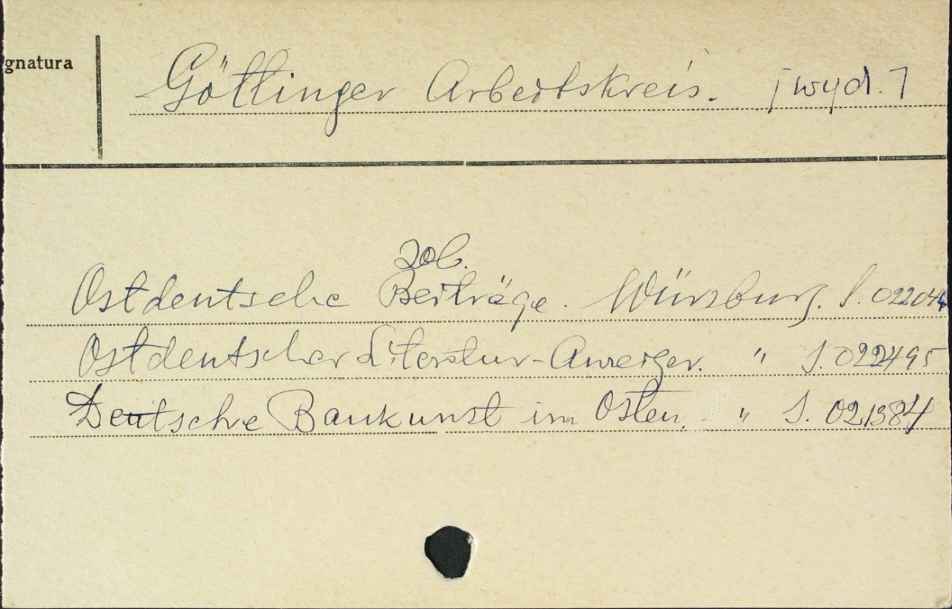 gnatura
Göttinger Arbeitskreis. [wyd.]
zob.
Ostdeutsche Beiträge. Würzburg. S. 022044
Ostdeutscher Literatur-Anzeiger. " S. 022495
Deutsche Baukunst im Osten. - " S. 021384